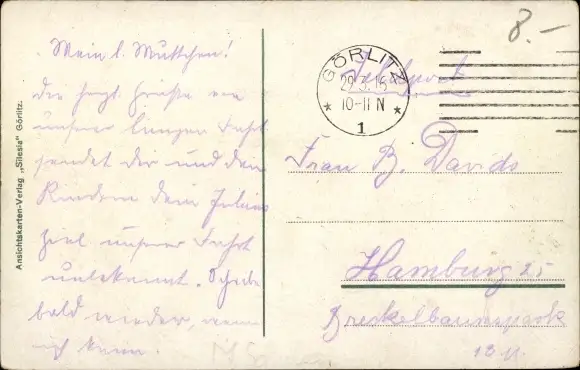 8.–
Mein l. Muttchen!
Die herzl. Grüße von
unserer langen Fahrt
sendet dir und den
Kindern dein Julius
Ziel unserer Fahrt
unbekannt. Schreibe
bald wieder, wenn
ich kann.
Ansichtskarten-Verlag „Silesia" Görlitz.
GÖRLITZ
29.3.15
10-11 N
* *
1
Feldpost
Frau B. Davids
Hamburg 25
Breckelbaumspark
18 II.